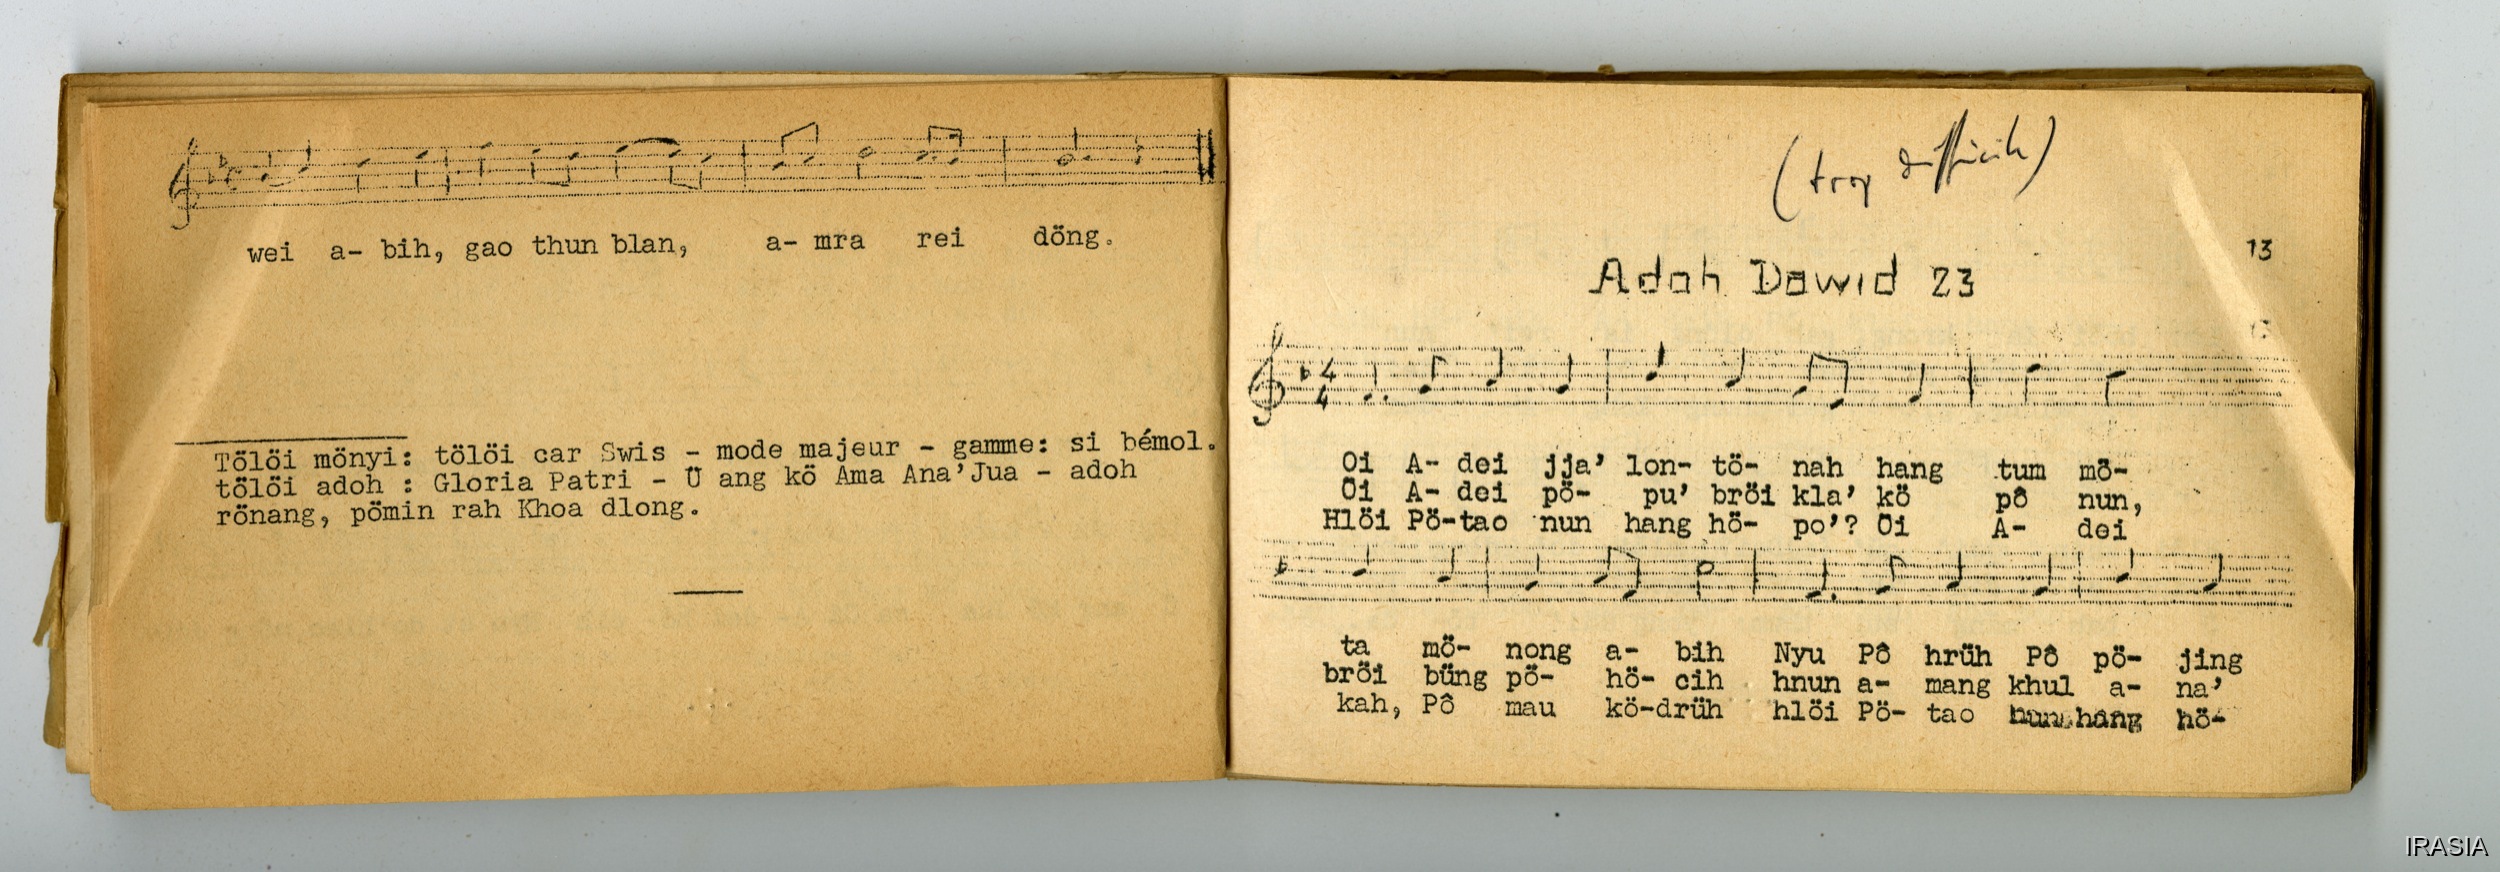 wei a- bih, gao thun blan, a- mra rei döng.
Tölöi mönyi: tölöi car Swis - mode majeur - gamme: si bémol.
tölöi adoh : Gloria Patri - Ü ang kö Ama Ana'Jua - adoh
rönang, pömin rah Khoa dlong.
(trop difficile)
13
Adoh Dawid 23
4
4
Oi A- dei jja' lon- tö- nah hang tum mö-
Öi A- dei pö- pu' bröi kla' kö pô nun,
Hlöi Pö-tao nun hang hö- po'? Öi A- dei
ta mö- nong a- bih Nyu Pô hrüh Pô pö- jing
bröi büng pö- hö- cih hnun a- mang khul a- na'
kah, Pô mau kö-drüh hlöi Pö- tao nun hang hö-
IRASIA